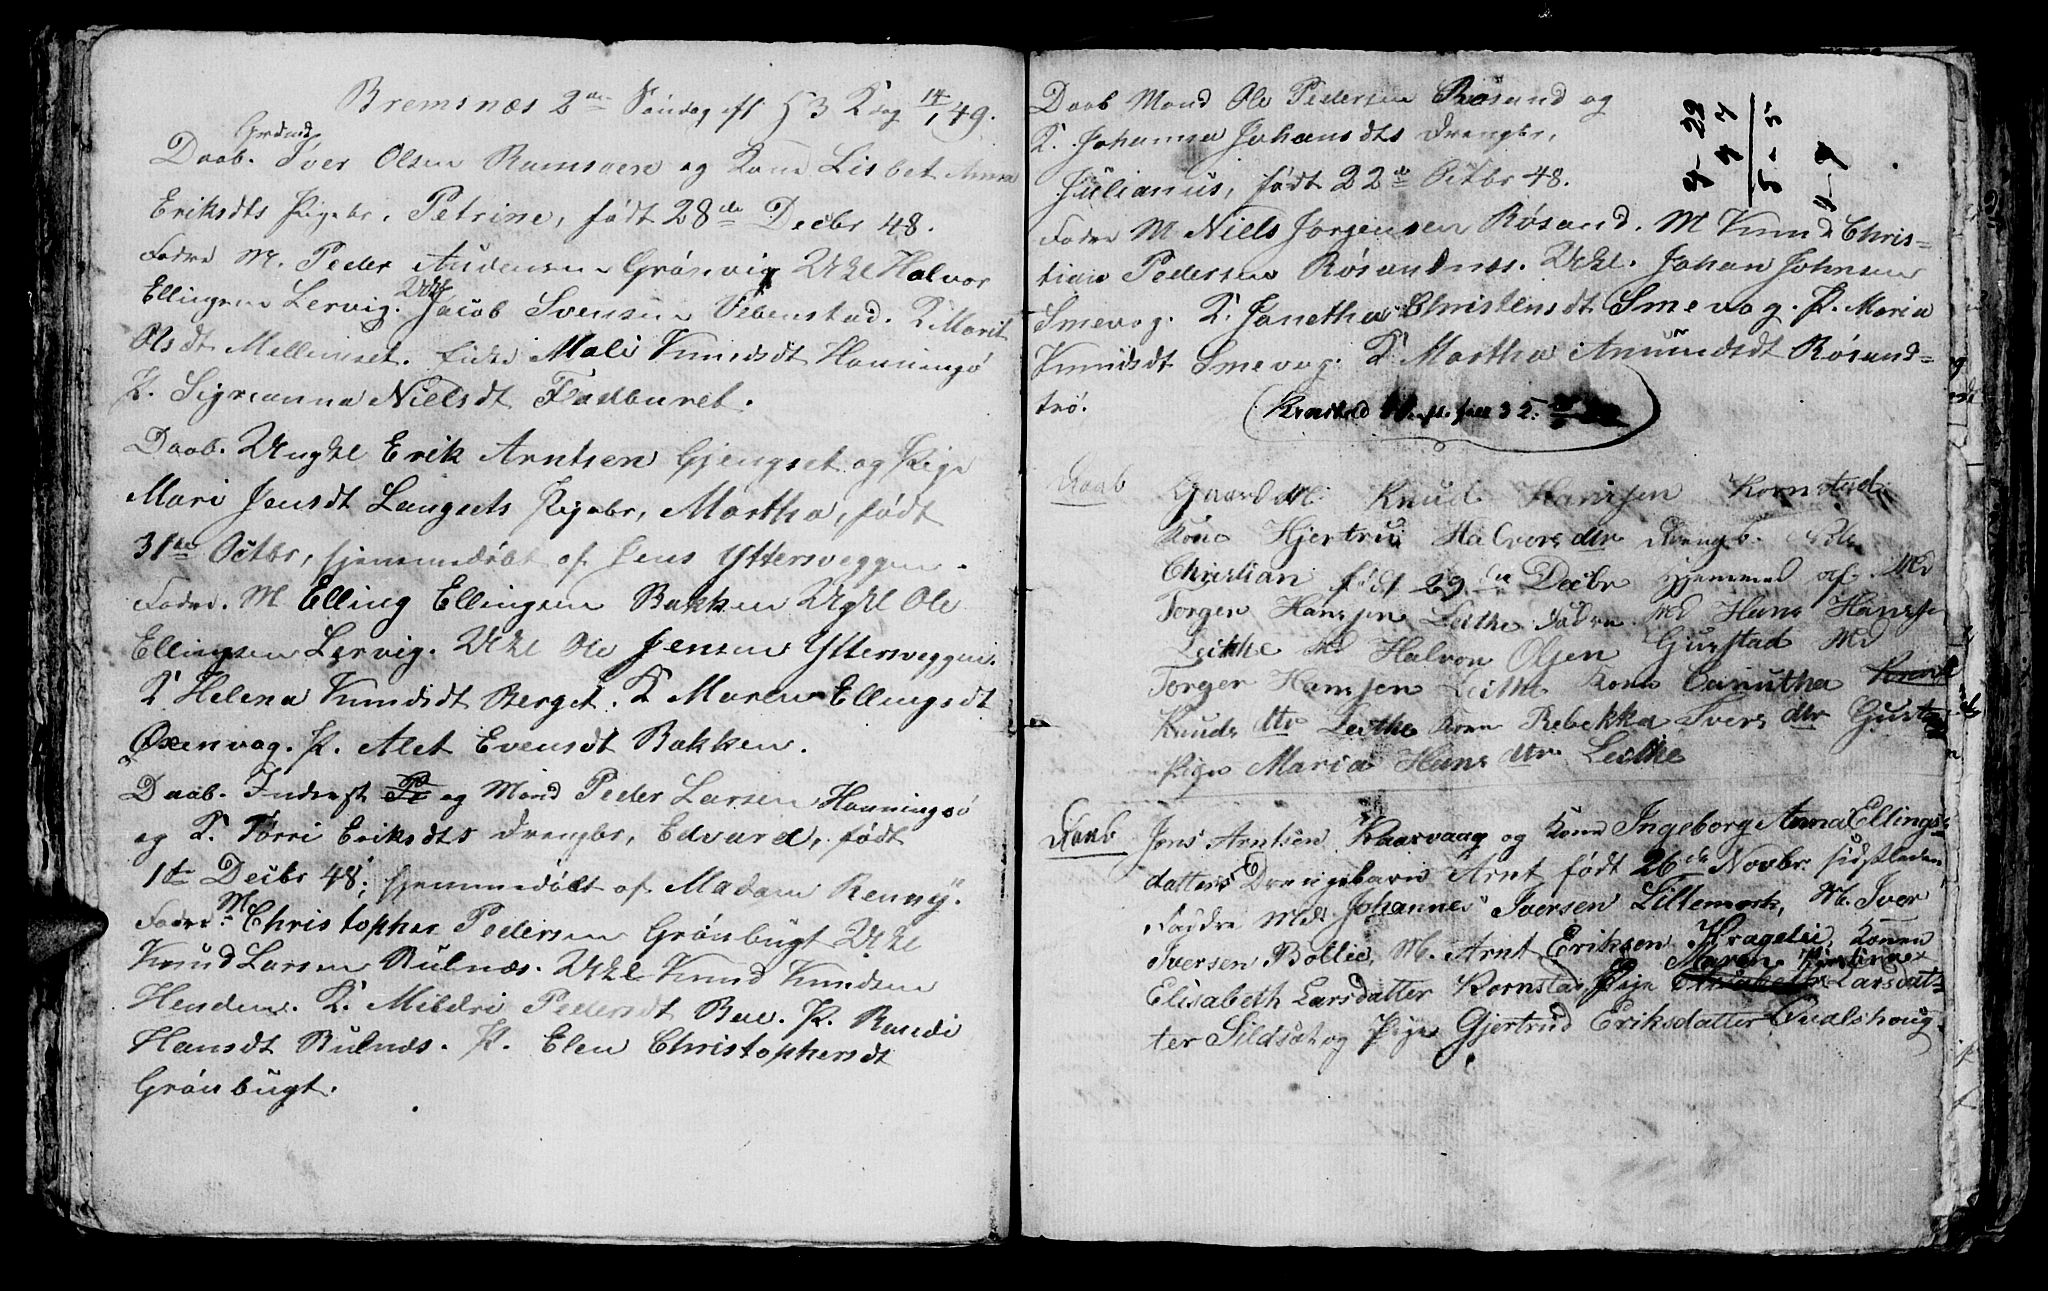 Bremsnæs 2den Søndag eft H3 Kdag 14/1 49.
Grdmd
Daab. Iver Olsen Ramsøen og Kone Lisbet Anna
Eriksdts Pigebr. Petrine, født 28de Decbr 48.
Fadre M. Peder Audensen Grønvig Ukl Halvor
Ellingsen Lervig. Ukl Jacob Svensen Vebenstad. K Marit
Olsdt Mellemset. Enke Mali Knudsdt Hanningsø
P. Sigrianna Nielsdt Fladburet.
Daab. Ungkl Erik Arntsen Gjengset og Pige
Mari Jensdt Langsets Pigebr, Martha, født
31te Octbr, hjemmedøbt af Jens Ytterveggen.
Fadre. M Elling Ellingsen Bakken Ugkl Ole
Ellingsen Lervig. Ukl Ole Jensen Ytterveggen.
K Helena Knudsdt Berget. K Maren Ellingsdt
Øxenvag. P. Alet Evensdt Bakken.
Daab. Inderst Pe og Mand Peder Larsen Hanningsø
og K. Tørri Eriksdts Drengbr, Edvard, født
1te Decbr 48; hjemmedøbt af Madam Renny.
Fadre M Christopher Pedersen Grønbugt Ukl
Knud Larsen Bulnæs. Ukl Knud Knudsen
Henden. K. Mildri Pedersdt Bae. P. Randi
Hansdt Bulnæs. P. Elen Christophersdt
Grønbugt.
Daab Mand Ole Pedersen Røsand og
K. Johanna Johansdts Drengbr,
Julianus, født 22de Octbr 48.
Fadre M Niels Jørgensen Røsand. M Knud Chris=
tian Pedersen Røsandnæs. Ukl. Johan Johnsen
Smevag. K. Janetha Christensdt Smevag. P. Maria
Knudsdt Smevag. K Martha Amundsdt Røsand=
trø.
4-22
4 4
5-5
4-9
Daab Gaardm. Knud Hanssen Kornstad
Kone Hjertru Halvorsdtr Drengb. Ole
Christian født 29de Decbr Hjemmed af. Md
Torger Hanssen Leithe Fadre. Md Hans Hansse
Leithe Md Halvor Olsen Gustad Md
Torger Hanssen Leithe Kone Canutha
Knudsdtr Leithe Kone Rebekka Iversdtr Gust
Pige Maria Hansdtr Leithe
Daab Jens Arntsen Kaarvaag og Kone Ingeborg Anna Ellings=
datters Drengebarn Arnt født 26de Novbr sidstleden
Faddre Md Johannes Iversen Lillemork, M. Iver
Iversen Bollie, M. Arnt Eriksen Kragelie, Konen
Maren
Elisabeth Larsdatter Kornstad, Pige Larsdat=
ter Sildsæt og Pige Gjertrud Eriksdatter Qualshoug.